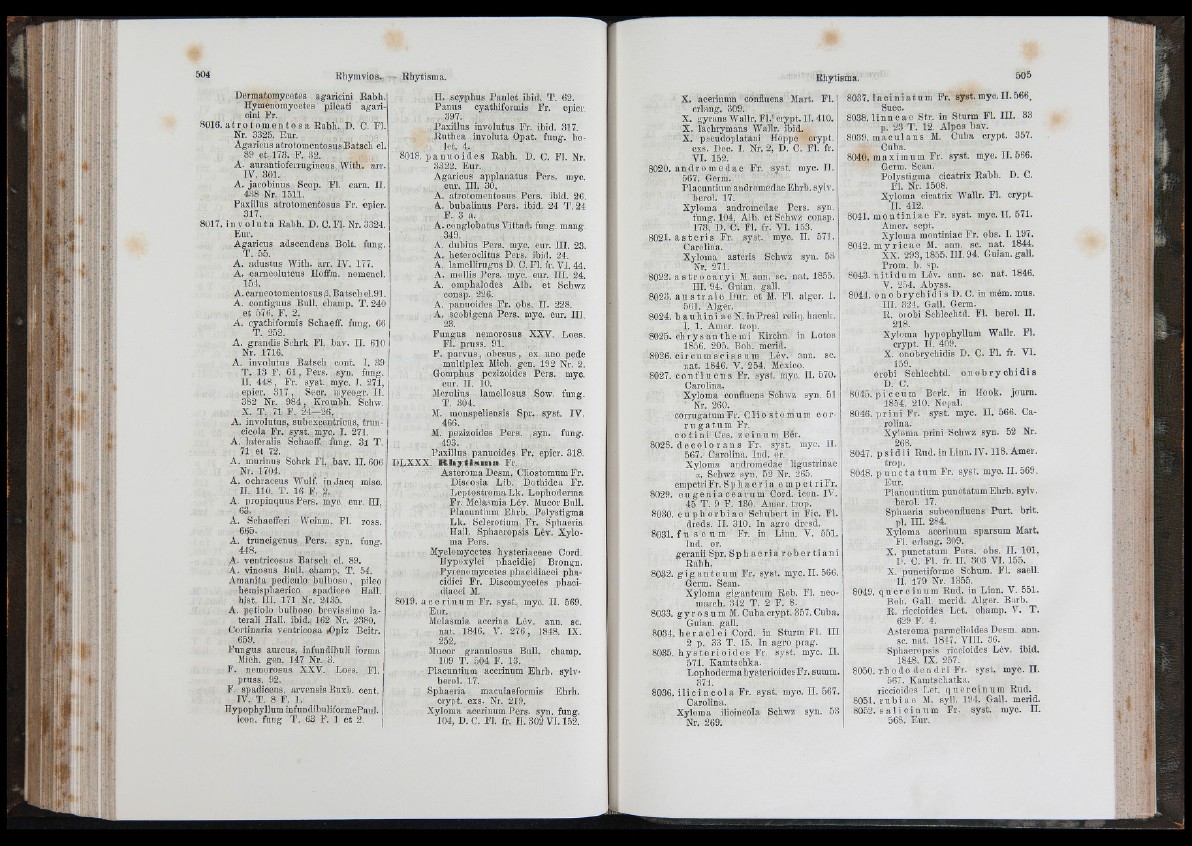 504 Rhymvios. — Rhytisma.
Dermatomycetes agaricini Rabh.
Hymenomycetes pileati agari-
cini Fr.
8016. atrotomentosa Rabh. D. C. Fl.
Nr. 3325. Eur.
Agaricus atrotomentosus Batsch el.
89 et 173. F. 32.
A. aurantioferrugineus With. arr.
IV. 301.
A. jacobinus Scop. Fl. carn. II.
438 Nr. 1511.
Paxillus atrotomentosus Fr. epicr.
317.
8017. involuta Rabh. D. C. Fl. Nr. 3324.
Eur.
Agaricus adscendens Bolt. fung.
T. 55.
A. adustus With. arr. IV. 177.
A. carneoluteus Hoffm. nomencl.
154.
A. carneotomentosus β. Batsch el. 91.
A. contiguus Bull. champ. T. 240
et 576. F. 2.
A. cyathiformis Schaeff. fung. 66
T. 252.
A. grandis Schrk Fl. bav. II. 610
Nr. 1716.
A. involutus Batsch cont. I. 39
T. 13 F. 61, Pers. syn. fung.
II. 448, Fr. syst. myc. I. 271,
epicr. 317, Secr. mycogr. II.
382 Nr. 984, Krombh. Schw.
X. T. 71 F. 24—26.
A. involutus, subexcentricus, trun-
cicola Fr. syst. myc. I. 271.
A. lateralis Schaeff. fung. 31 T.
71 et 72.
A. murinus Schrk Fl. bav. II. 606
Nr. 1704.
A. ochraceus Wulf. in Jacq. misc.
II. 110. T. 16 F. 2.
A. propinquus Pers. myc. eur. III.
63.
A. Schaefferi Weinm. Fl. ross.
665.
A. truncigenus Pers. syn. fung.
448.
A. ventricosus Batsch el. 89.
A. vinosus Bull. champ. T. 54.
Amanita pediculo bulboso, pileo
hemisphaerico spadiceo Hall.
hist. III. 171 Nr. 2435.
A. petiolo bulboso brevissimo la-
terali Hall. ibid. 162 Nr. 2380.
Cortinaria ventricosa Opiz Beitr.
659.
Fungus aureus, infundibuli forma
Mich. gen. 147 Nr. 3.
F. nemorosus XXV. Loes. Fl.
pruss. 92.
F. spadiceus, arvensis Buxb. cent.
IV. T. 8 F. 1.
Hypophyllum infundibuliforme Paul.
icon. fung T. 63 F. 1 et 2.
H. scyphus Paulet ibid. T. 62.
Panus cyathiformis Fr. epicr.
397.
Paxillus involutus Fr. ibid. 317.
Ruthea involuta Opat. fung. bo-
let. 4.
8018. panuoides Rabh. D. C. Fl. Nr.
3322. Eur.
Agaricus applanatus Pers. myc.
eur. III. 30.
A. atrotomentosus Pers. ibid. 26.
A. bubalinus Pers. ibid. 24 T. 24
F. 3 a.
A. conglobatus Vittad. fung. mang.
349.
A. dubius Pers. myc. eur. III. 23.
A. heteroclitus Pers. ibid. 24.
A. lamellirugus D. C. Fl. fr. VI. 44.
A. mollis Pers. myc. eur. III. 24.
A. omphalodes Alb. et Schwz
consp. 226.
A. panuoides Fr. obs. II. 228.
A. scobigena Pers. myc. eur. III.
23.
Fungus nemorosus XXV. Loes.
Fl. pruss. 91.
F. parvus, obesus, ex uno pede
multiplex Mich. gen. 192 Nr. 2.
Gomphus pezizoides Pers. myc.
eur. II. 10.
Merulius lamellosus Sow. fung.
T. 304.
M. monspeliensis Spr. syst. IV.
466.
M. pezizoides Pers. syn. fung.
493.
Paxillus panuoides Fr. epicr. 318.
DLXXX. Rhytisma Fr.
Asteroma Desm. Cliostomum Fr.
Discosia Lib. Dothidea Fr.
Leptostroma Lk. Lophoderma
Fr. Melasmia Lév. Mucor Bull.
Placuntium Ehrb. Polystigma
Lk. Sclerotium Fr. Sphaeria
Hall. Sphaeropsis Lév. Xylo-
ma Pers.
Myelomycetes hysteriaceae Cord.
Hypoxylei phacidiei Brongn.
Pyrenomycetes phacidiacei pha-
cidiei Fr. Discomycetes phaci-
diacei M.
8019. acerinum Fr. syst. myc. II. 569.
Eur.
Melasmia acerina Lév. ann. sc.
nat. 1846. V. 276, 1848. IX.
252.
Mucor granulosus Bull. champ.
109 T. 504 F. 13.
Placuntium acerinum Ehrb. sylv.
berol. 17.
Sphaeria maculaeformis Ehrh.
crypt. exs. Nr. 219.
Xyloma acerinum Pers. syn. fung.
104, D. C. Fl. fr. II. 302 VI. 152.
Rhytisma. 505
X. acerinum confluens Mart. Fl.
erlang. 309.
X. gyrans Wallr. Fl. crypt. II. 410.
X. lachrymans Wallr. ibid.
X. pseudoplatani Hoppe crypt.
exs. Dec. I. Nr. 2, D. C. Fl. fr.
VI. 152.
8020. andromedae Fr. syst. myc. II.
567. Germ.
Placuntium andromedae Ehrb. sylv.
berol. 17.
Xyloma andromedae Pers. syn.
fung. 104, Alb. et Schwz consp.
173, D. C. Fl. fr. VI. 153.
8021. asteris Fr. syst. myc. II. 571.
Carolina.
Xyloma asteris Schwz syn. 53
Nr. 271.
8022. astrocaryi M. ann. sc. nat. 1855.
III. 94. Guian. gall.
8023. australe Dur. et M. Fl. alger. I.
561. Alger.
8024. bauhiniae N. in Presl reliq. haenk.
I. 1. Amer. trop.
8025. chrysanthemi Kirchn. in Lotos
1856. 205. Boh. merid.
8026. circumscissum Lév. ann. sc.
nat. 1846. V. 254. Mexico.
8027. confluens Fr. syst. myc. II. 570.
Carolina.
Xyloma confluens Schwz syn. 51
Nr. 260.
corrugatum Fr. Cliostomum cor-
rugatum Fr.
cotini Ces. zeinum Bér.
8028. decolorans Fr. syst. myc. II.
567. Carolina. Ind. or.
Xyloma andromedae ligustrinae
Schwz syn. 52 Nr. 265.
empetri Fr. Sphaeria empetri Fr.
8029. eugeniacearum Cord. icon. IV.
45 T. 9 F. 130. Amer. trop.
8030. euphorbiae Schubert in Fic. Fl.
dresd. II. 310. In agro dresd.
8031. fuscum Fr. in Linn. V. 551.
Ind. or.
geranii Spr. Sphaeria robertiani
Rabh.
8032. giganteum Fr. syst. myc. II. 566.
Germ. Scan.
Xyloma giganteum Reb. Fl. neo-
march. 342 T. 2 F. 8.
8033. gyrosum M. Cuba crypt. 357. Cuba.
Guian. gall.
8034. heraclei Cord. in Sturm Fl. III
2 p. 33 T. 15. In agro prag.
8035. hysterioides Fr. syst. myc. II.
571. Kamtschka.
Lophoderma hysterioides Fr. summ.
371.
8036. ilicincola Fr. syst. myc. II. 567.
Carolina.
Xyloma ilicincola Schwz syn. 53
Nr. 269.
8037. laciniatum Fr. syst. myc. II. 566.
Suec.
8038. linneae Str. in Sturm Fl. III. 33
p. 23 T. 12. Alpes bav.
8039. maculans M. Cuba crypt. 357.
Cuba.
8040. maximum Fr. syst. myc. II. 566.
Germ. Scan.
Polystigma cicatrix Rabh. D. C.
Fl. Nr. 1508.
Xyloma cicatrix Wallr. Fl. crypt.
II. 412.
8041. montiniae Fr. syst. myc. II. 571.
Amer. sept.
Xyloma montiniae Fr. obs. I. 197.
8042. myricae M. ann. sc. nat. 1844.
XX. 293, 1855. III. 94. Guian. gall.
Prom. b. sp.
8043. nitidum Lév. ann. sc. nat. 1846.
V. 254. Abyss.
8044. onobrychidis D. C. in mém. mus.
III. 324. Gall. Germ.
R. orobi Schlechtd. Fl. berol. II.
218.
Xyloma hypophyllum Wallr. Fl.
crypt. II. 409.
X. onobrychidis D. C. Fl. fr. VI.
159.
orobi Schlechtd. onobrychidis
D. C.
8045. piceum Berk. in Hook. journ.
1854. 210. Nepal.
8046. prini Fr. syst. myc. II. 566. Ca-
rolina.
Xyloma prini Schwz syn. 52 Nr.
268.
8047. psidii Rud. in Linn. IV. 118. Amer.
trop.
8048. punctatum Fr. syst. myc. II. 569.
Eur.
Placuntium punctatum Ehrb. sylv.
berol. 17.
Sphaeria subconfluens Purt. brit.
pl. III. 284.
Xyloma acerinum sparsum Mart.
Fl. erlang. 309.
X. punctatum Pers. obs. II. 101,
D. C. Fl. fr. II. 303 VI. 155.
X. punctiforme Schum. Fl. saell.
II. 179 Nr. 1355.
8049. quercinum Rud. in Linn. V. 551.
Boh. Gall. merid. Alger. Barb.
R. riccioides Let. champ. V. T.
629 F. 4.
Asteroma parmelioides Desm. ann.
sc. nat. 1847. VIII. 36.
Sphaeropsis riccioides Lév. ibid.
1848. IX. 257.
8050. rhododendri Fr. syst. myc. II.
567. Kamtschatka.
riccioides Let. quercinum Rud.
8051. rubiae M. syll. 194. Gall. merid.
8052. salicinum Fr. syst. myc. II.
568. Eur.